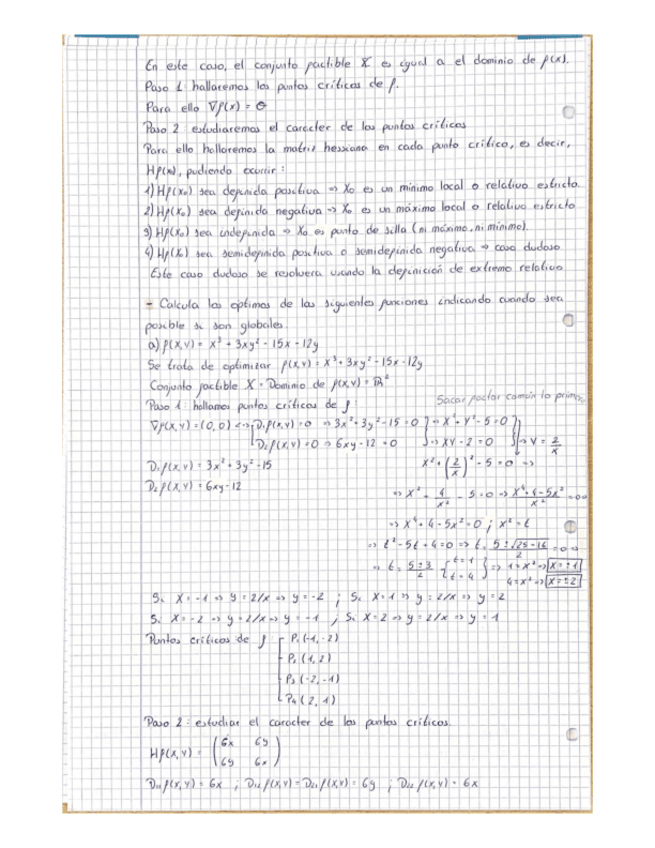 En este caso, el conjunto factible X es igual a el dominio de f(x).
Paso 1: hallaremos los puntos críticos de f.
Para ello ∇f(x) = θ
Paso 2: estudiaremos el caracter de los puntos críticos
Para ello hallaremos la matriz hessiana en cada punto crítico, es decir,
Hf(x), pudiendo ocurrir:
1) Hf(x₀) sea definida positiva => X₀ es un mínimo local o relativo estricto.
2) Hf(x₀) sea definida negativa => X₀ es un máximo local o relativo estricto
3) Hf(x₀) sea indefinida => X₀ es punto de silla (ni máximo, ni mínimo).
4) Hf(x₀) sea semidefinida positiva o semidefinida negativa => caso dudoso
Este caso dudoso se resolvera usando la definición de extremo relativo
- Calcula los optimos de las siguientes funciones indicando cuando sea
posible si son globales.
a) f(x,y) = x³ + 3xy² - 15x - 12y
Se trata de optimizar f(x,y) = x³ + 3xy² - 15x - 12y
Conjunto factible X = Dominio de f(x,y) = ℝ²
Sacar factor común lo primero
Paso 1: hallamos puntos críticos de f:
∇f(x,y) = (0,0) <=> { D₁f(x,y) = 0 => 3x² + 3y² - 15 = 0 } => x² + y² - 5 = 0 }
D₂f(x,y) = 0 => 6xy - 12 = 0 } => xy - 2 = 0 } => y = 2/x
D₁f(x,y) = 3x² + 3y² - 15
x² + (2/x)² - 5 = 0 =>
D₂f(x,y) = 6xy - 12
=> x² + 4/x² - 5 = 0 => x⁴ + 4 - 5x²/x² = 0 =>
=> x⁴ + 4 - 5x² = 0 ; x² = t
=> t² - 5t + 4 = 0 => t = 5 ± √25 - 16/2 = 0 =>
=> t = 5 ± 3/2 { t = 1 t = 4 } => 1 = x² => x = ±1
4 = x² => x = ±2
Si x = -1 => y = 2/x => y = -2 ; Si x = 1 => y = 2/x => y = 2
Si x = -2 => y = 2/x => y = -1 ; Si x = 2 => y = 2/x => y = 1
Puntos críticos de f { P₁ (-1, -2)
P₂ (1, 2)
P₃ (-2, -1)
P₄ (2, 1)
Paso 2: estudiar el caracter de los puntos críticos.
Hf(x,y) = ( 6x 6y
6y 6x )
D₁₁f(x,y) = 6x ; D₁₂f(x,y) = D₂₁f(x,y) = 6y ; D₂₂f(x,y) = 6x